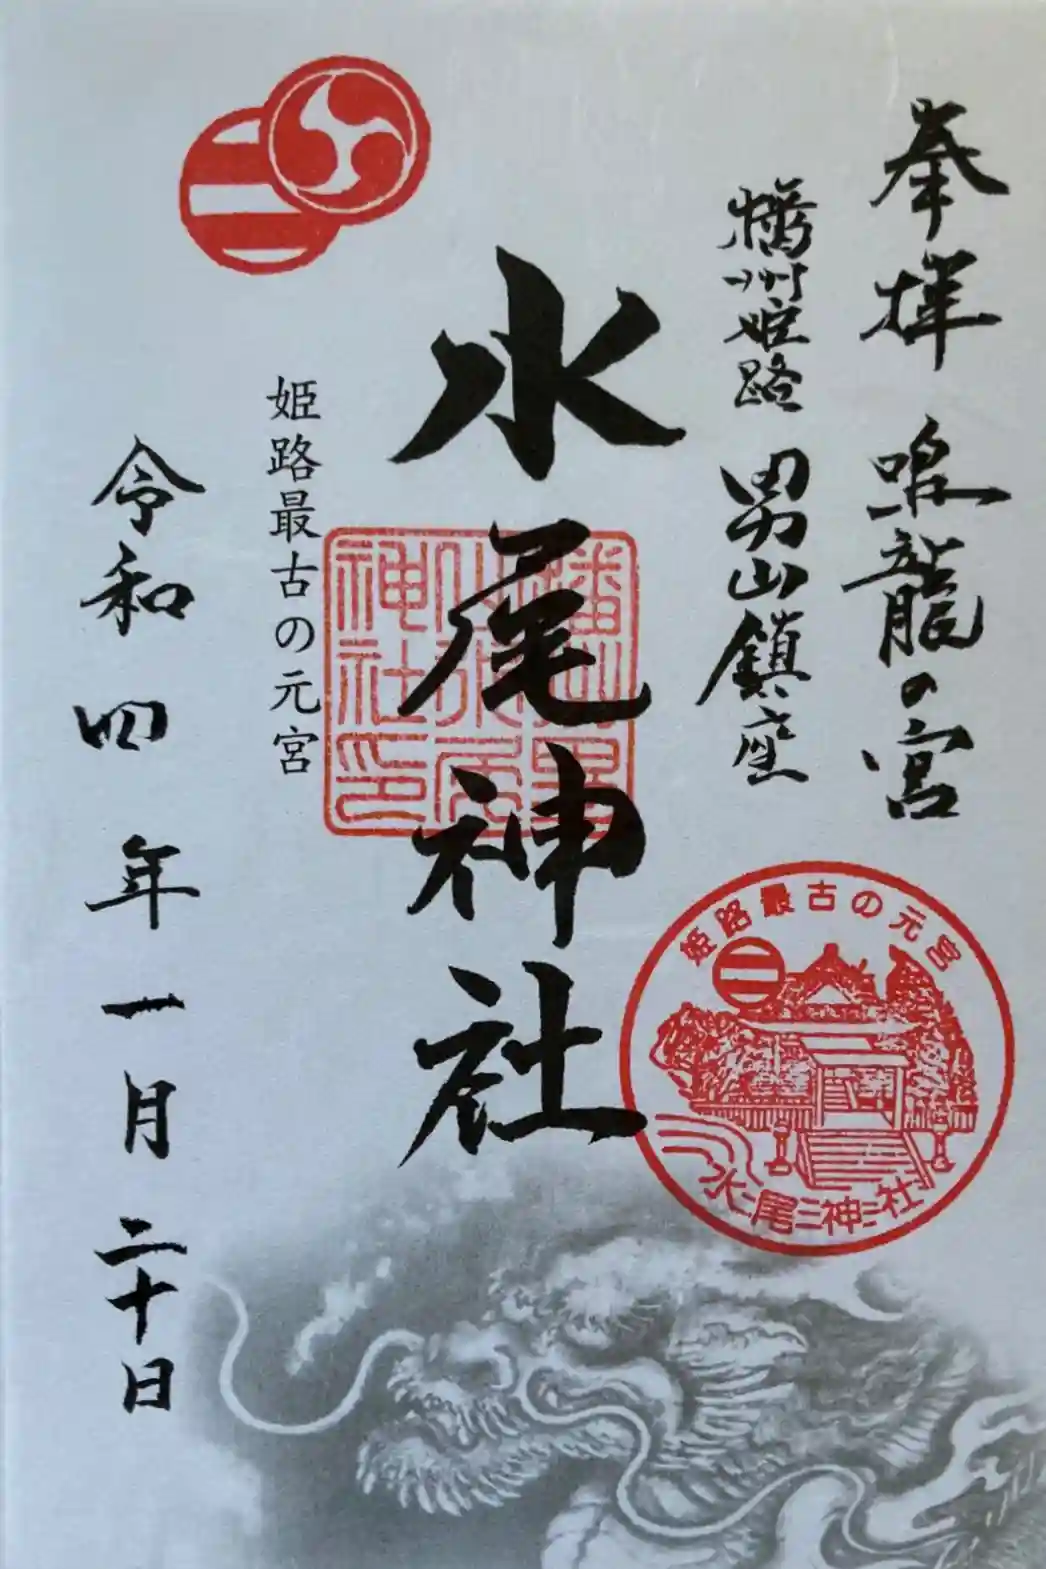 奉拝 黒龍の宮
播州姫路 男山鎮座
水尾神社
播州男
山水尾
神社印
姫路最古の元宮
令和四年一月二十日
姫路最古の元宮
水尾神社